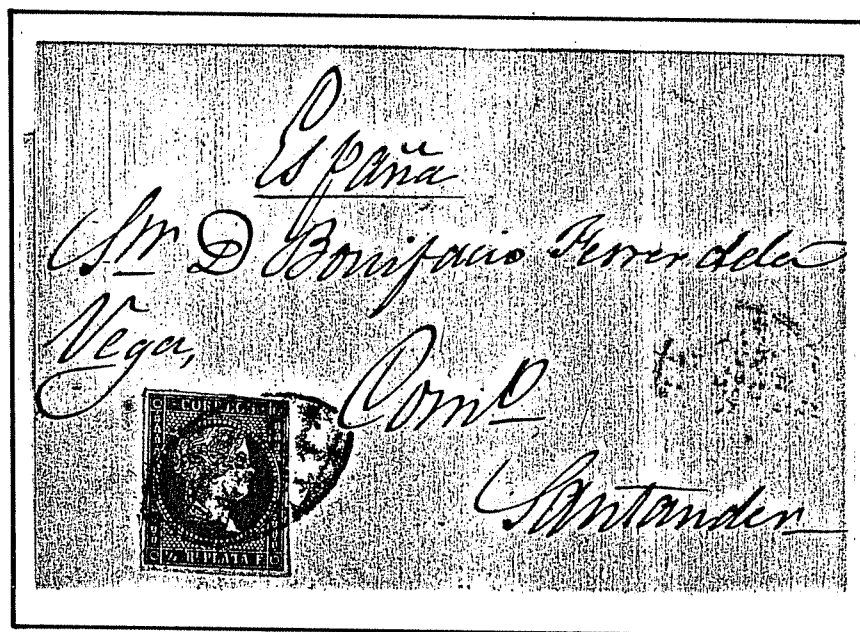 España
Sr. D Bonifacio Ferrer de la
Vega,
Com.o
Santander
CORREOS
PLATA F